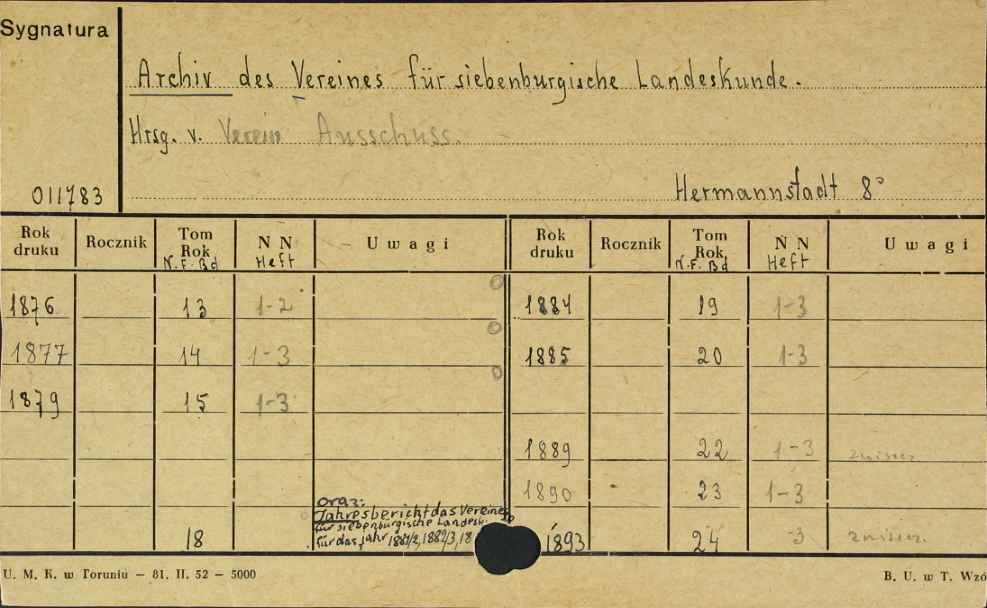 Sygnatura
Archiv des Vereines für siebenburgische Landeskunde.
Hrsg. v. Verein Ausschuss.
011783
Hermannstadt 8°
Rok druku Rocznik Tom Rok N.F. Bd N N Heft U w a g i Rok druku Rocznik Tom Rok N.F. Bd N N Heft U w a g i
1876 13 1-2 1884 19 1-3
1877 14 1-3 1885 20 1-3
1879 15 1-3
1889 22 1-3 zniszcz.
1890 23 1-3
oraz:
Jahresbericht das Vereines
für siebenbürgische Landesk.
für das Jahr 1881/2, 1882/3, 18
18 1893 24 3 zniszcz.
U. M. K. w Toruniu — 81. II. 52 — 5000
B. U. w T. Wzó